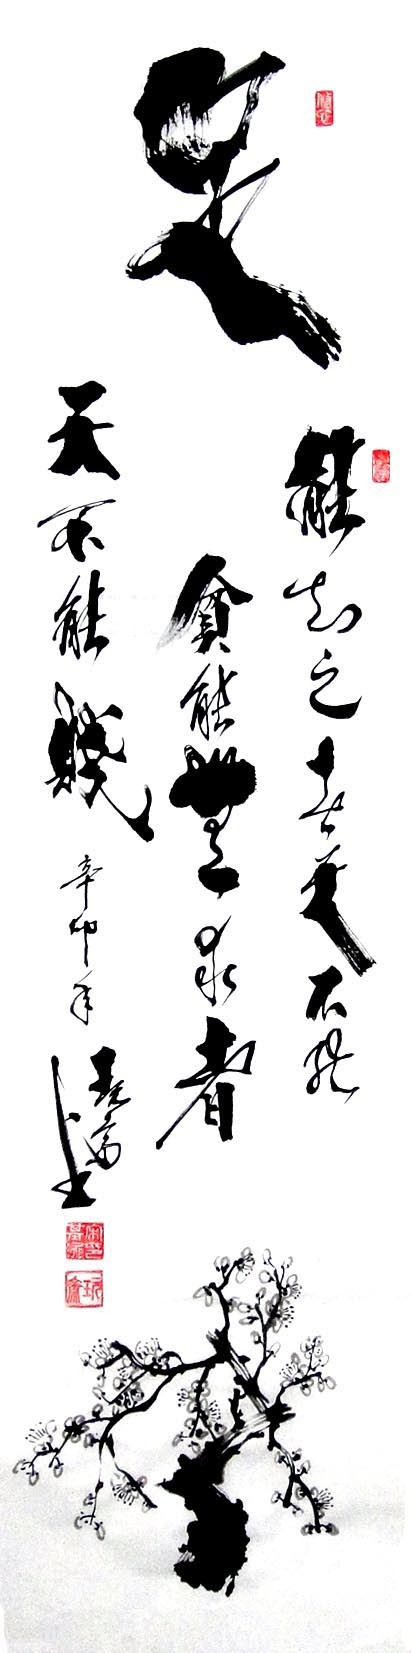 足
能知足者天不能
貧能無求者
天不能賤
辛卯年